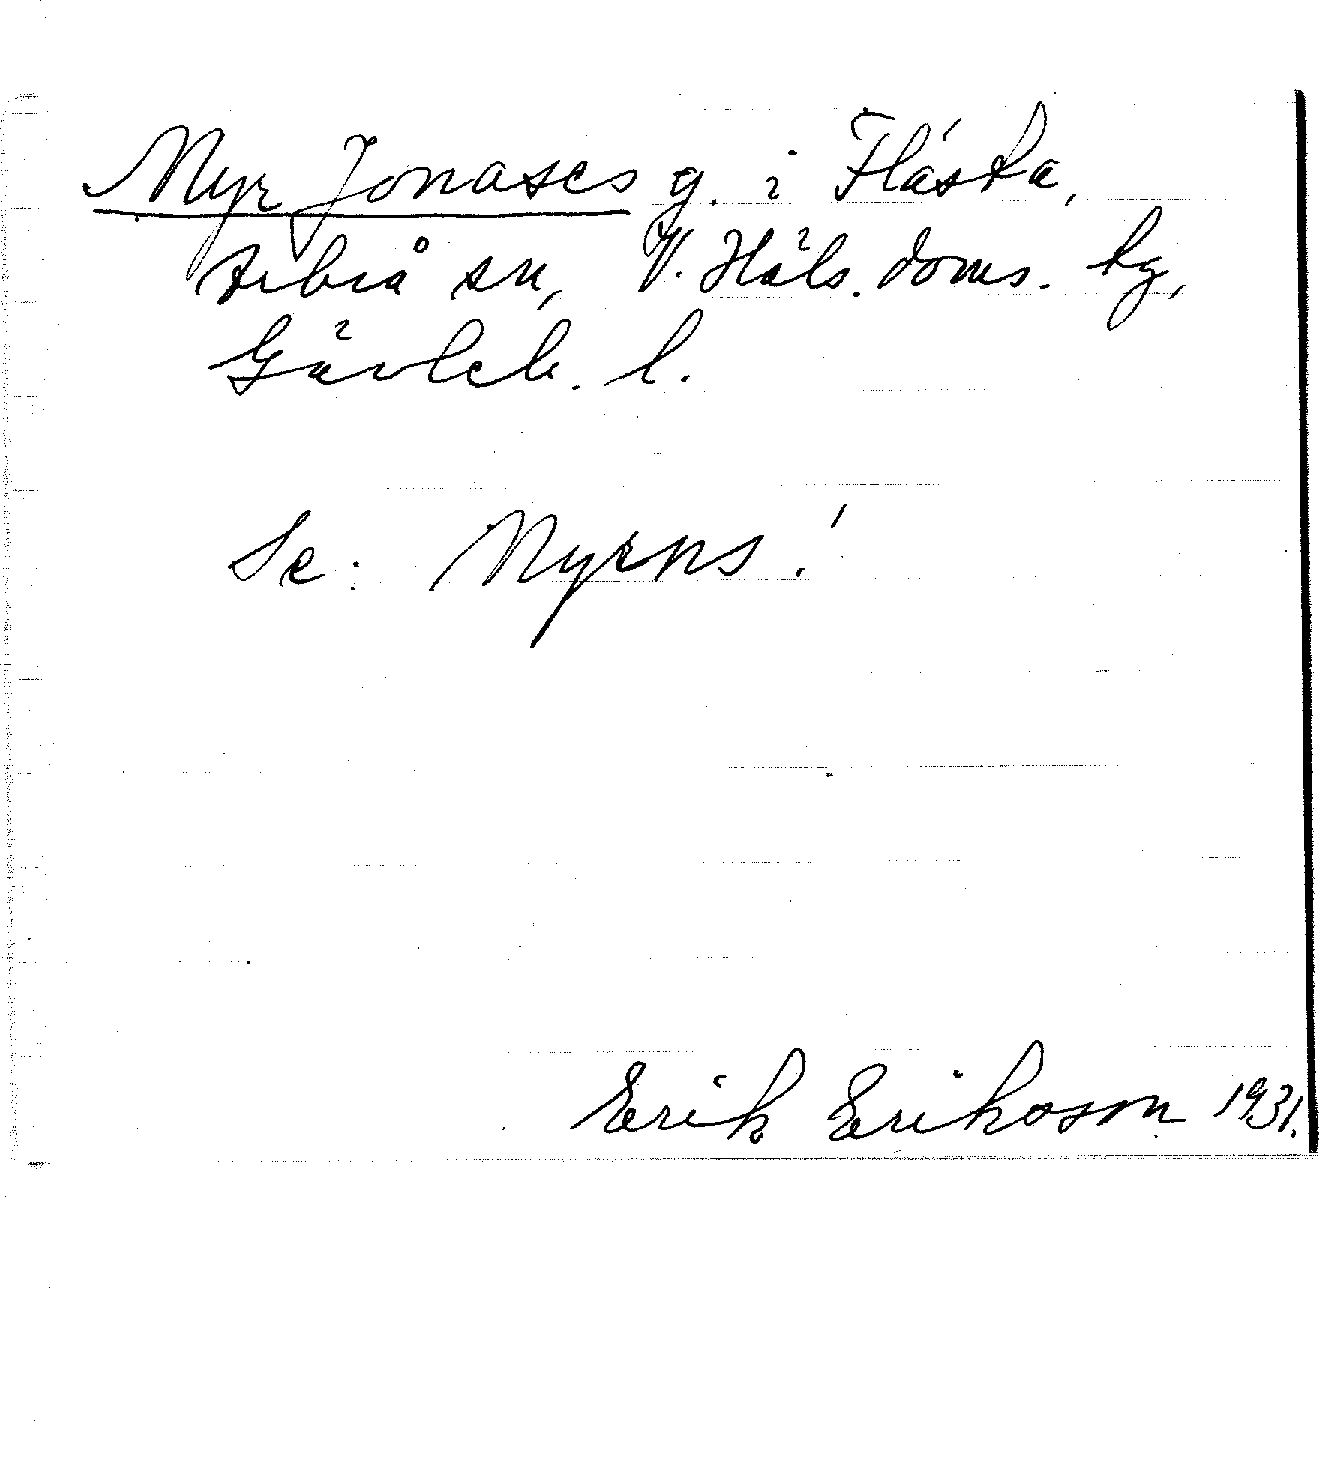 Myr Jonases g. i Flästa,
Arbrå sn, V. Häls. doms. hg,
Gävleb. l.
Se: Myrns!
Erik Eriksson 1931.